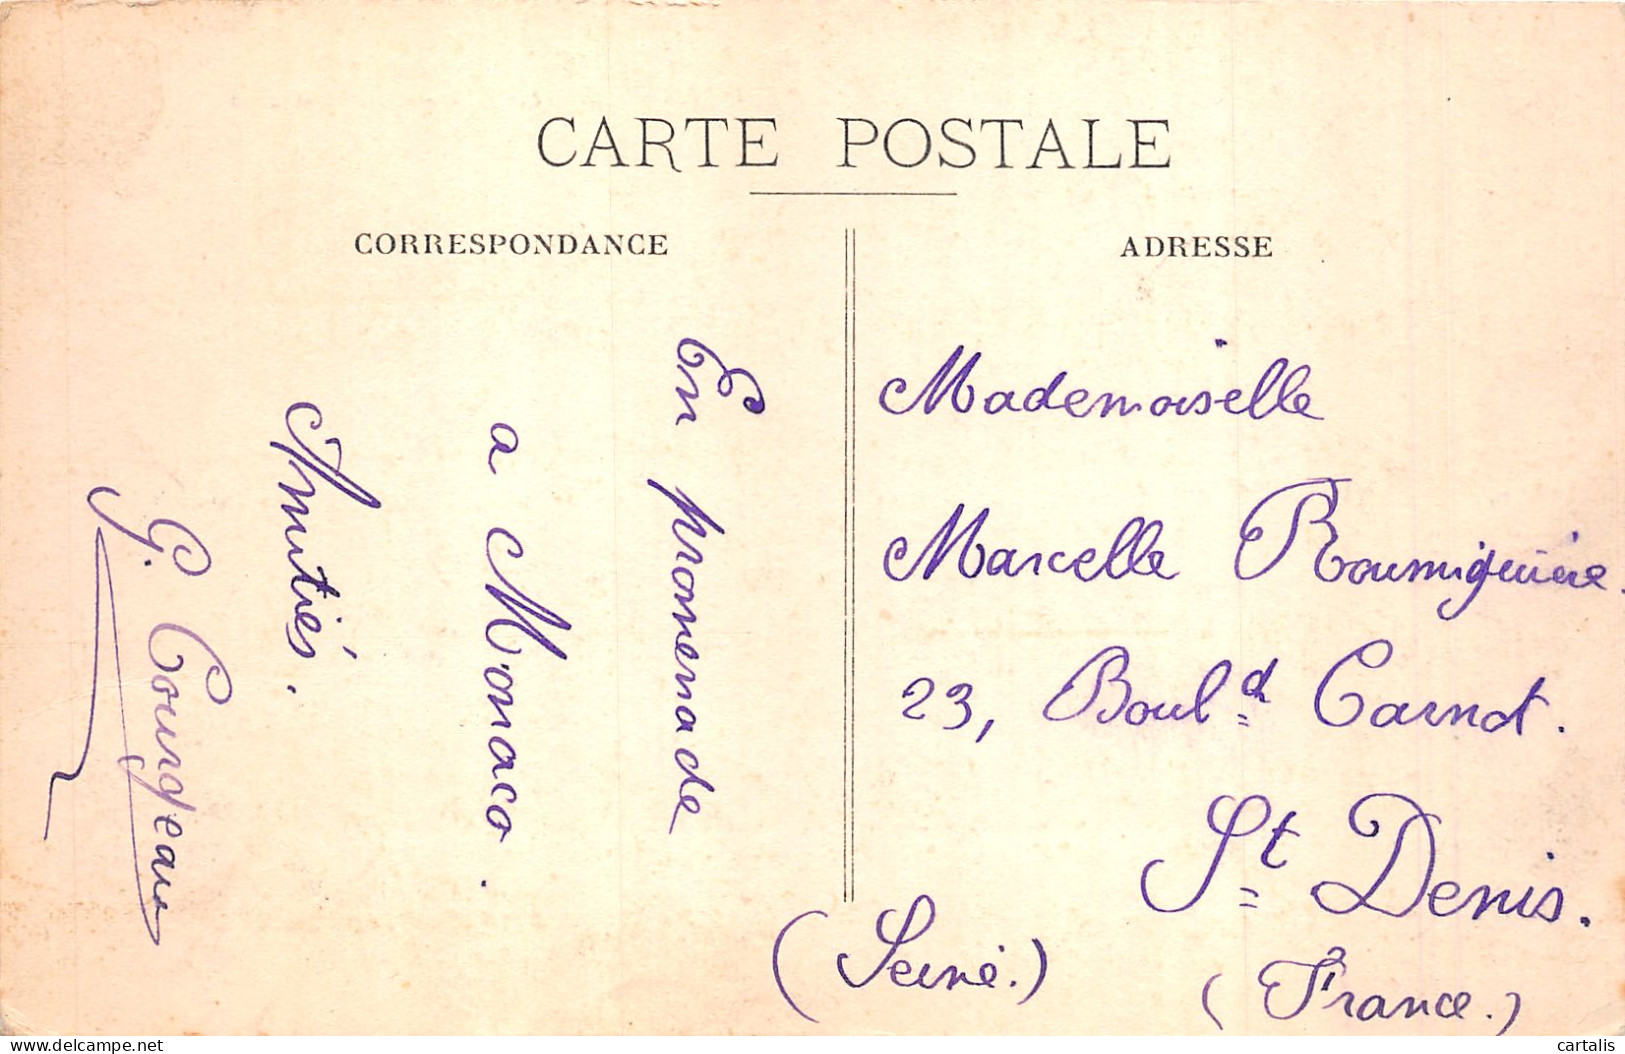 CARTE POSTALE
CORRESPONDANCE
En promenade
a Monaco.
Amitiés.
G. Courgeau
ADRESSE
Mademoiselle
Marcelle Roumiguière.
23, Boul.d Carnot.
St Denis.
(Seine.)
(France.)
delcampe.net
cartalis